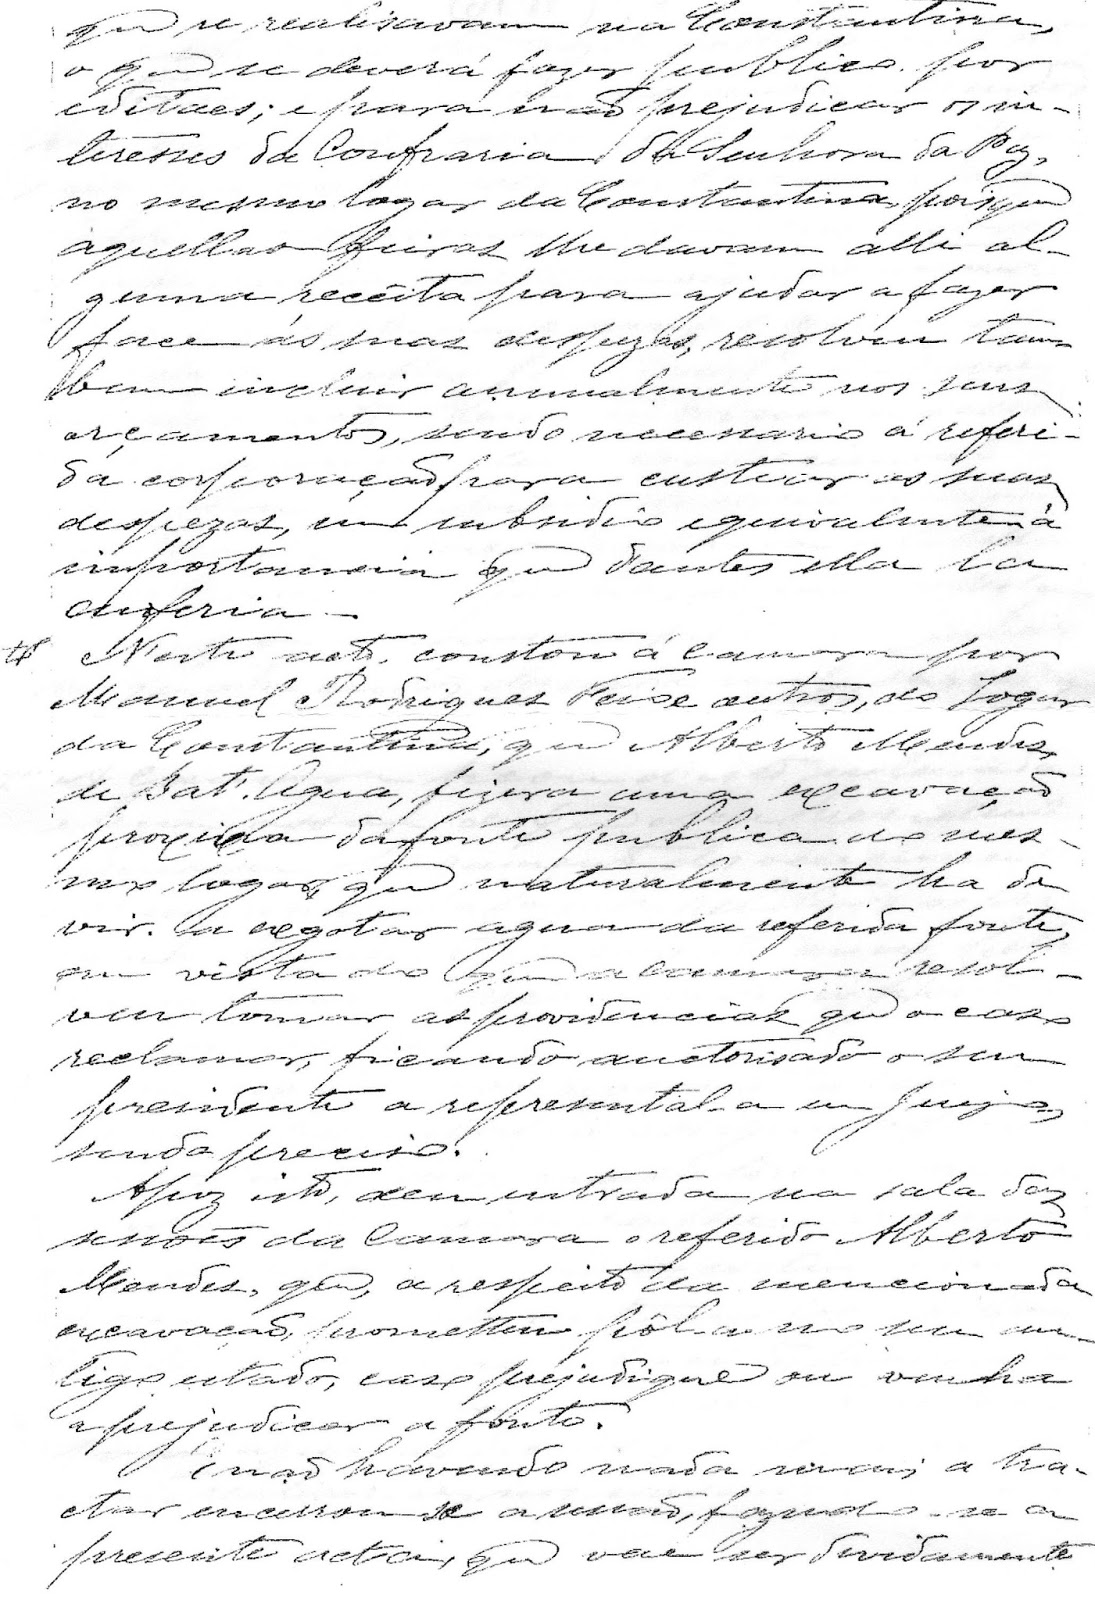 que se realisavam na Constantina,
o que se deverá fazer publico por
editaes; e para não prejudicar os in-
teresses da Confraria da Senhora da Paz,
no mesmo logar da Constantina, pois que
aquellas feiras lhe davam alli al-
guma receita para ajudar a fazer
face ás suas despezas, resolveu tam
bem incluir annualmente nos seus
orçamentos, sendo necessario á referi-
da corporação para custear as suas
despezas, um subsidio equivalente á
importancia que d'antes ella la
auferia.
Neste acto constou á Camara por
Manuel Rodrigues e outros, do logar
da Constantina, que Alberto Mendes,
de Bat.ª Agua, fizera uma excavação
proxima da fonte publica do mes-
mo logar, que naturalmente ha de
vir a exgotar agua da referida fonte,
em vista do que a Camara resol-
veu tomar as providencias que o caso
reclamar, ficando auctorisado o seu
presidente a represental-a em Juizo,
sendo preciso.
Apoz isto, deu entrada na sala das
sessões da Camara o referido Alberto
Mendes, que, a respeito da mencionada
excavação, prometteu pôl-a no seu an-
tigo estado, caso prejudique ou venha
a prejudicar a fonte.
E não havendo nada mais a tra-
ctar encerrou se a sessão, fazendo-se a
presente acta, que vae ser devidamente